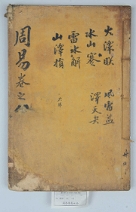 火澤睽
水山蹇
雷水解
山澤損
風雷益
澤天夬
周易卷之八